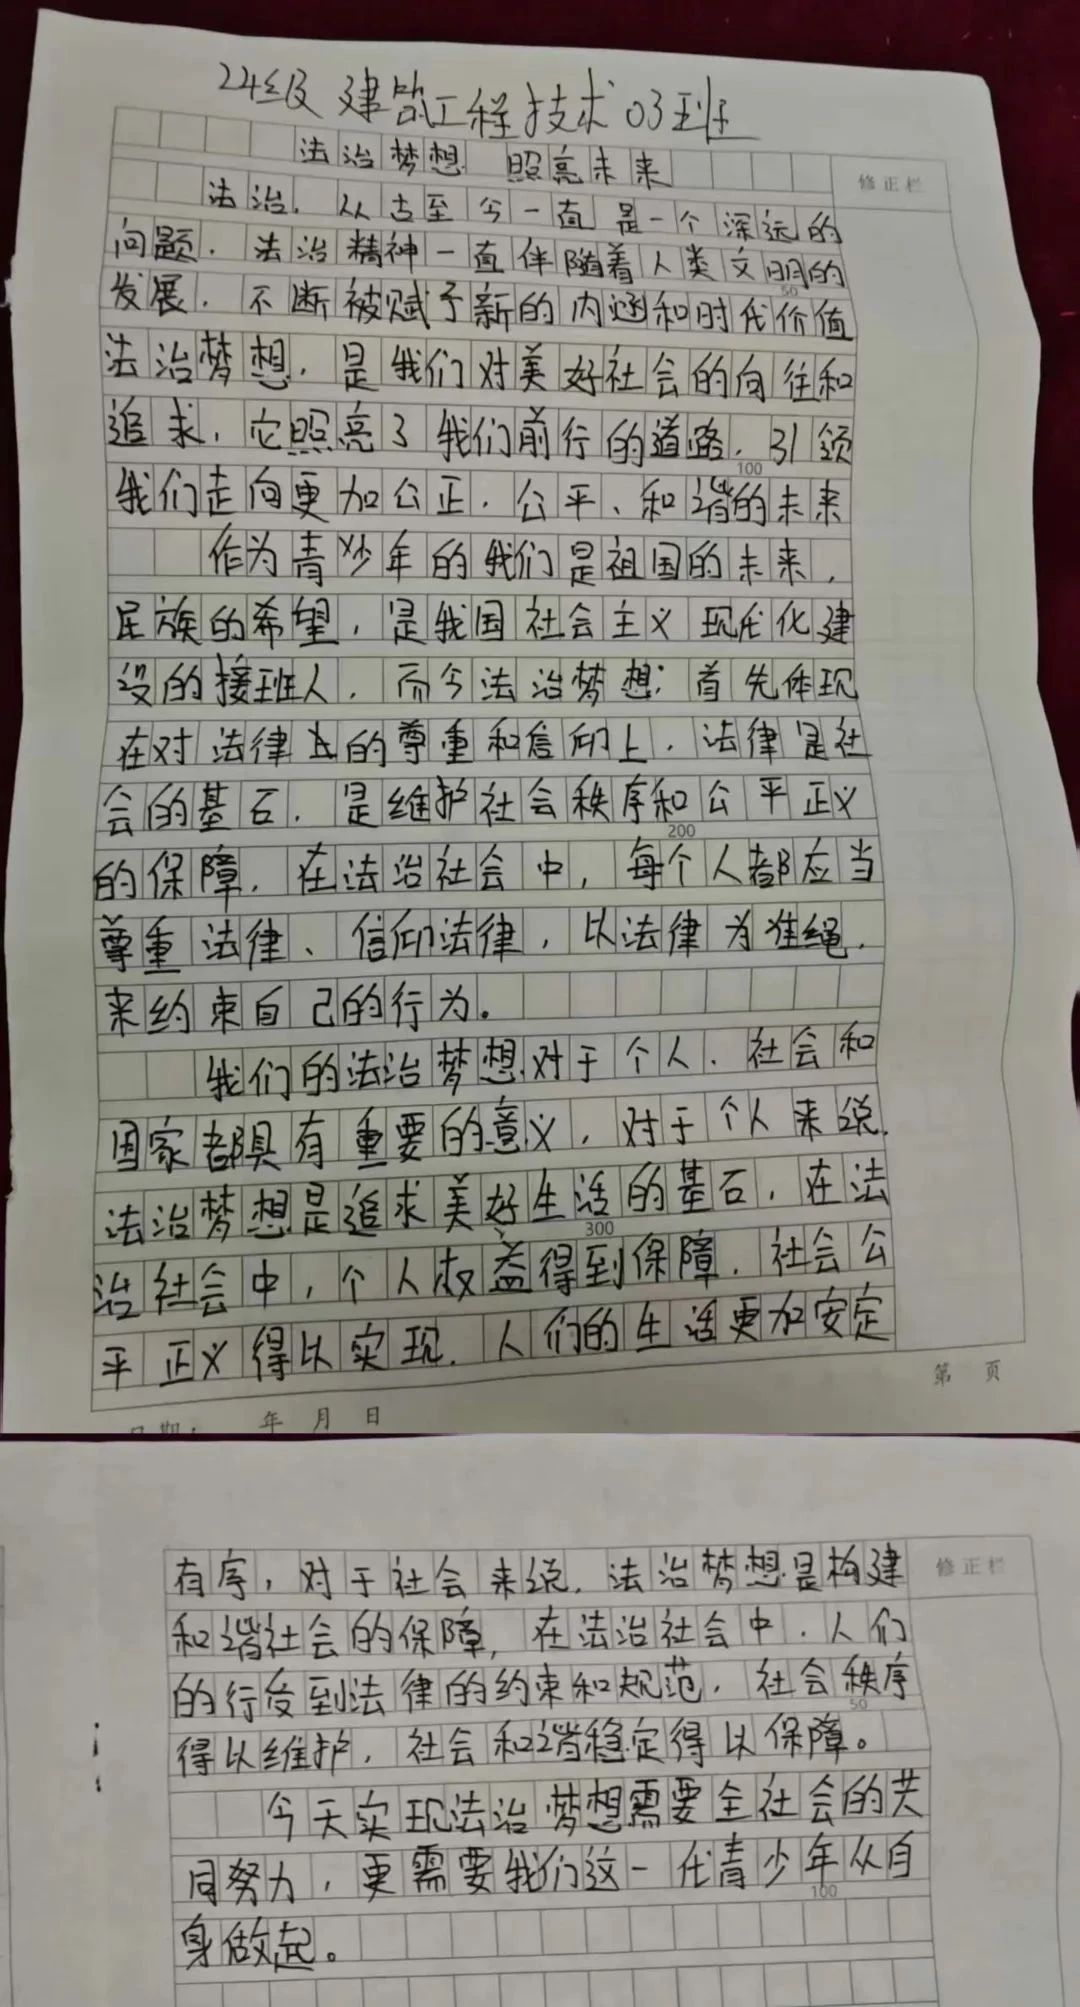 24级 建筑工程技术03班
法治梦想 照亮未来
修正栏
法治，从古至今一直是一个深远的
问题．法治精神一直伴随着人类文明的
50
发展．不断被赋予新的内涵和时代价值
法治梦想．是我们对美好社会的向往和
追求，它照亮了我们前行的道路．引领
100
我们走向更加公正．公平、和谐的未来
作为青少年的我们是祖国的未来，
民族的希望，是我国社会主义现代化建
设的接班人．而今法治梦想；首先体现
在对法律的尊重和信仰上．法律是社
会的基石．是维护社会秩序和公平正义
200
的保障．在法治社会中，每个人都应当
尊重法律、信仰法律，以法律为准绳．
来约束自己的行为。
我们的法治梦想对于个人．社会和
国家都具有重要的意义，对于个人来说．
法治梦想是追求美好生活的基石．在法
300
治社会中，个人权益得到保障．社会公
平正义得以实现．人们的生活更加安定
第 页
日期： 年 月 日
有序，对于社会来说．法治梦想是构建
修正栏
和谐社会的保障，在法治社会中．人们
的行受到法律的约束和规范．社会秩序
50
得以维护．社会和谐稳定得以保障。
今天实现法治梦想需要全社会的共
同努力，更需要我们这一代青少年从自
100
身做起。